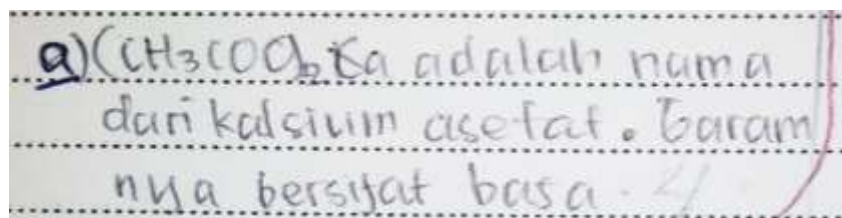 a) (CH3COO)2 Ca adalah nama
dari kalsium asetat. Garam
nya bersifat basa.